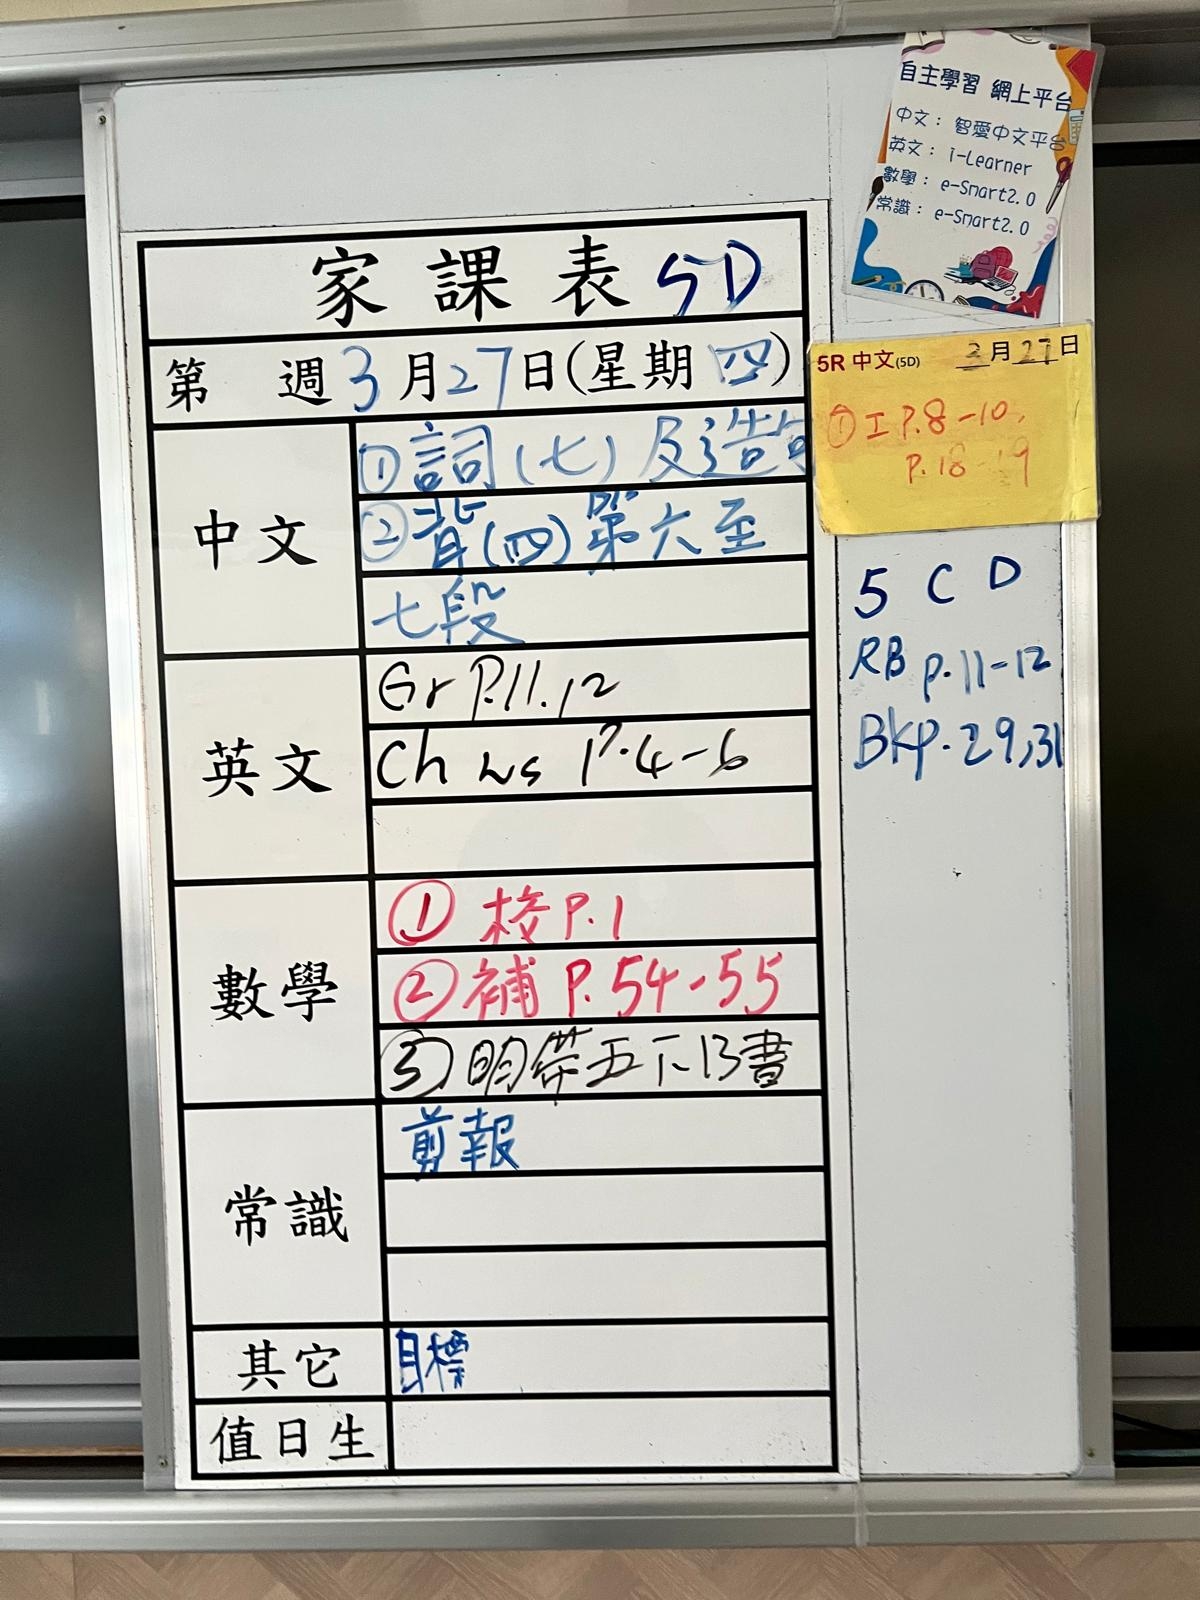 自主學習 網上平台
中文：智愛中文平台
英文：i-Learner
數學：e-Smart2.0
常識：e-Smart2.0
家課表 5D
第 週 3月27日(星期四)
中文
①詞(七)及造句
②背(四)第六至
七段
英文
Gr P.11.12
Ch ws P.4-6
數學
① 校P.1
② 補 P.54-55
③ 明帶五下B書
常識
剪報
其它
目標
值日生
5R 中文(5D) 3月27日
① I P.8-10,
P.18-19
5 C D
RB p.11-12
BK p.29,31